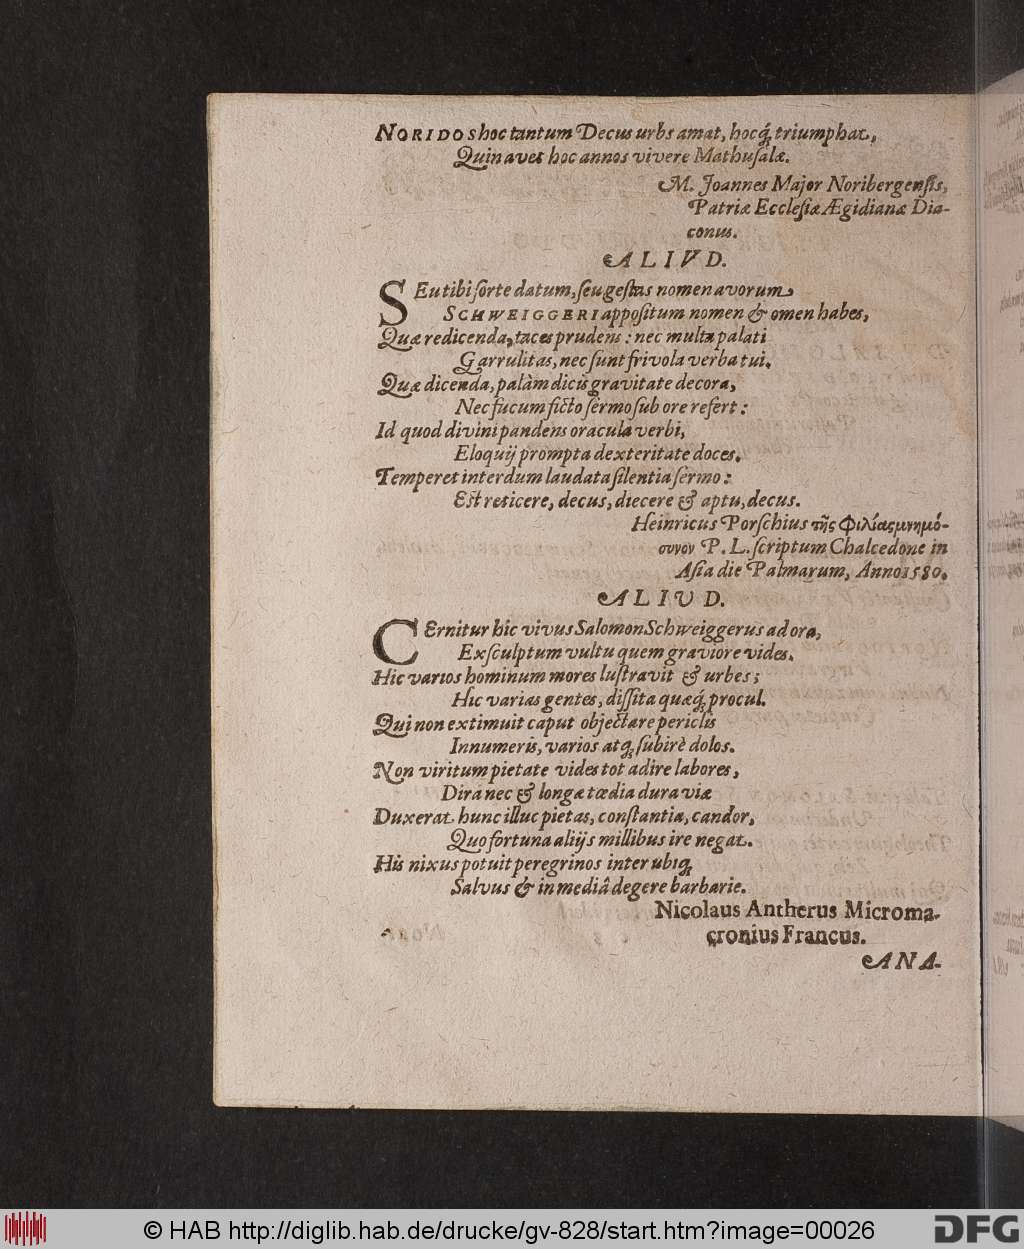 NORIDOS hoc tantum Decus urbs amat, hocq́; triumphat,
Quin avet hoc annos vivere Mathusalæ.
M. Joannes Major Noribergensis,
Patriæ Ecclesiæ Ægidianæ Dia-
conus.
ALIVD.
SEu tibi sorte datum, seu gestas nomen avorum
SCHWEIGGERI appositum nomen & omen habes,
Quæ redicenda, taces prudens: nec multa palati
Garrulitas, nec sunt frivola verba tui.
Quæ dicenda, palàm dicis gravitate decora,
Nec fucum ficto sermo sub ore refert:
Id quod divini pandens oracula verbi,
Eloquij prompta dexteritate doces.
Temperet interdum laudata silentia sermo:
Est reticere, decus, diecere & aptu, decus.
Heinricus Porschius τῆς Φιλίας μνημό-
συνον P. L. scriptum Chalcedone in
Asia die Palmarum, Anno 1580.
ALIUD.
CErnitur hic vivus Salomon Schweiggerus ad ora,
Exsculptum vultu quem graviore vides.
Hic varios hominum mores lustravit & urbes;
Hic varias gentes, dissita quæq́; procul.
Qui non extimuit caput objectare periclis
Innumeris, varios atq; subirè dolos.
Non viritum pietate vides tot adire labores,
Dira nec & longa tœdia dura viæ
Duxerat hunc illuc pietas, constantia, candor,
Quo fortuna aliijs millibus ire negat.
His nixus potuit peregrinos inter ubiq;
Salvus & in mediâ degere barbarie.
Nicolaus Antherus Microma-
cronius Francus.
ANA-
© HAB http://diglib.hab.de/drucke/gv-828/start.htm?image=00026
DFG